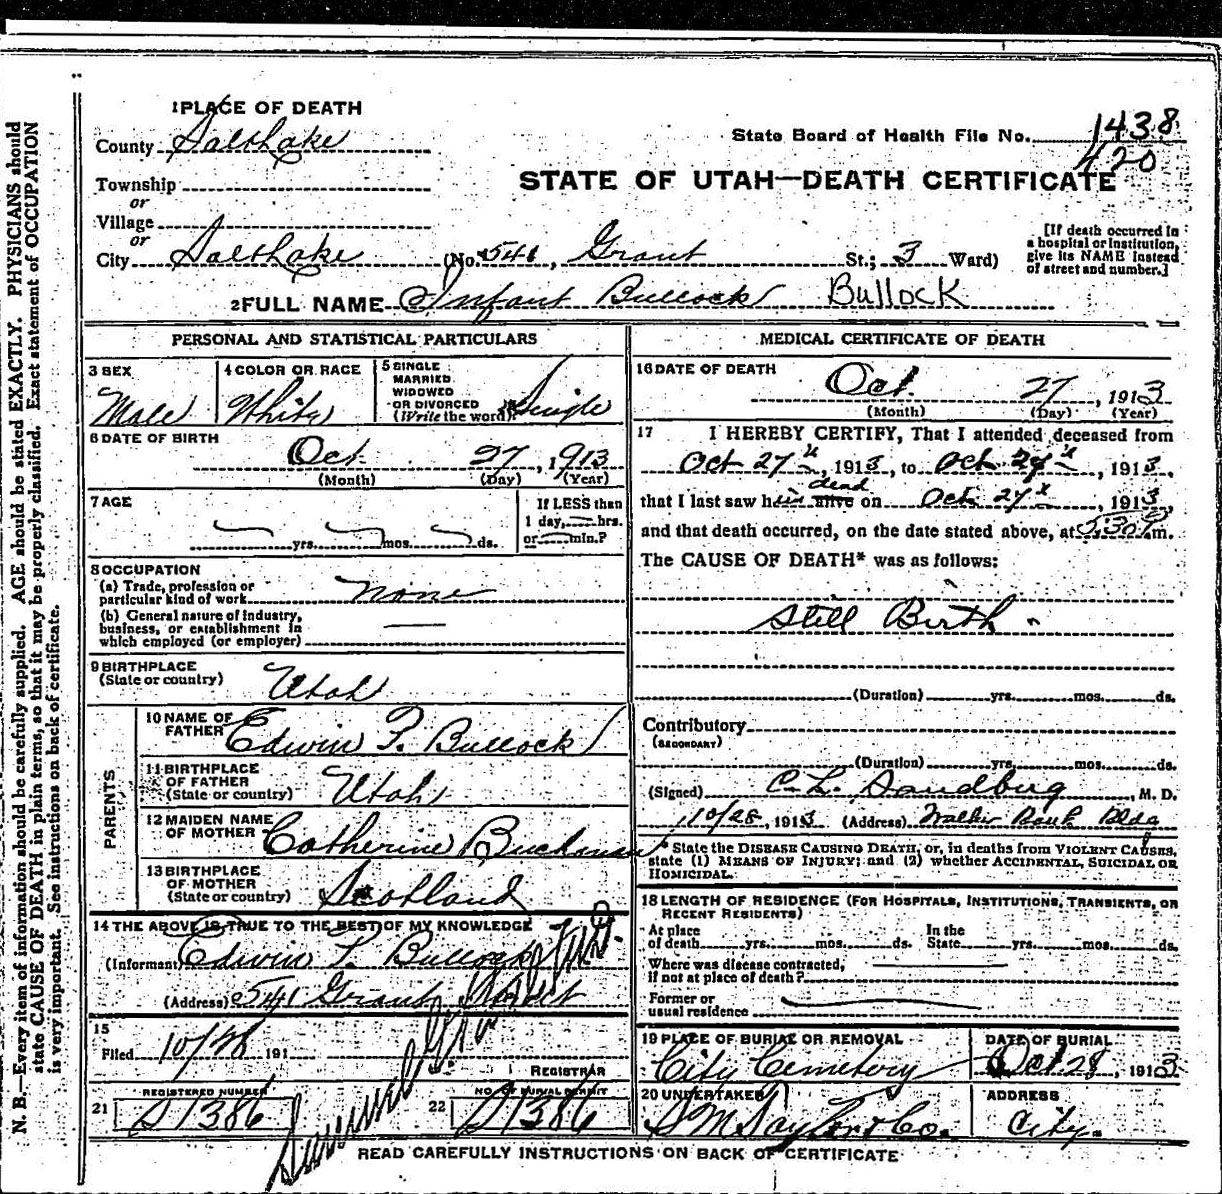 1 PLACE OF DEATH
County Salt Lake
State Board of Health File No. 1438
420
Township
or
Village
or
STATE OF UTAH—DEATH CERTIFICATE
City Salt Lake (No. 541, Grant St.; 3 Ward)
[If death occurred in
a hospital or institution,
give its NAME instead
of street and number.]
2 FULL NAME Infant Bullock BULLOCK
PERSONAL AND STATISTICAL PARTICULARS
3 SEX
Male
4 COLOR OR RACE
White
5 SINGLE
MARRIED
WIDOWED
OR DIVORCED
(Write the word) Single
6 DATE OF BIRTH
Oct 27, 1913
(Month) (Day) (Year)
7 AGE
yrs. mos. ds.
If LESS than
1 day, hrs.
or min.?
8 OCCUPATION
(a) Trade, profession or
particular kind of work none
(b) General nature of industry,
business, or establishment in
which employed (or employer)
9 BIRTHPLACE
(State or country) Utah
PARENTS
10 NAME OF
FATHER Edwin T. Bullock
11 BIRTHPLACE
OF FATHER
(State or country) Utah
12 MAIDEN NAME
OF MOTHER Catherine Buchanan
13 BIRTHPLACE
OF MOTHER
(State or country) Scotland
14 THE ABOVE IS TRUE TO THE BEST OF MY KNOWLEDGE
(Informant) Edwin T. Bullock
(Address) 541 Grant Street
15
Filed 10/28 191
REGISTRAR
REGISTERED NUMBER
21 S1386
NO. OF BURIAL PERMIT
22 S1386
MEDICAL CERTIFICATE OF DEATH
16 DATE OF DEATH
Oct. 27, 1913
(Month) (Day) (Year)
17 I HEREBY CERTIFY, That I attended deceased from
Oct 27, 1913, to Oct 27, 1913,
dead
that I last saw him alive on Oct 27, 1913,
and that death occurred, on the date stated above, at 5:30 m.
The CAUSE OF DEATH* was as follows:
Still Birth.
(Duration) yrs. mos. ds.
Contributory
(SECONDARY)
(Duration) yrs. mos. ds.
(Signed) C. L. Sandberg, M. D.
10/28, 1913 (Address) Walker Bank Bldg
* State the DISEASE CAUSING DEATH, or, in deaths from VIOLENT CAUSES,
state (1) MEANS OF INJURY; and (2) whether ACCIDENTAL, SUICIDAL OR
HOMICIDAL.
18 LENGTH OF RESIDENCE (FOR HOSPITALS, INSTITUTIONS, TRANSIENTS, OR
RECENT RESIDENTS)
At place In the
of death yrs. mos. ds. State yrs. mos. ds.
Where was disease contracted,
if not at place of death?
Former or
usual residence
19 PLACE OF BURIAL OR REMOVAL
City Cemetery
DATE OF BURIAL
Oct 28, 1913
20 UNDERTAKER
S M Taylor & Co.
ADDRESS
City.
READ CAREFULLY INSTRUCTIONS ON BACK OF CERTIFICATE
N. B.—Every item of information should be carefully supplied. AGE should be stated EXACTLY. PHYSICIANS should
state CAUSE OF DEATH in plain terms, so that it may be properly classified. Exact statement of OCCUPATION
is very important. See instructions on back of certificate.